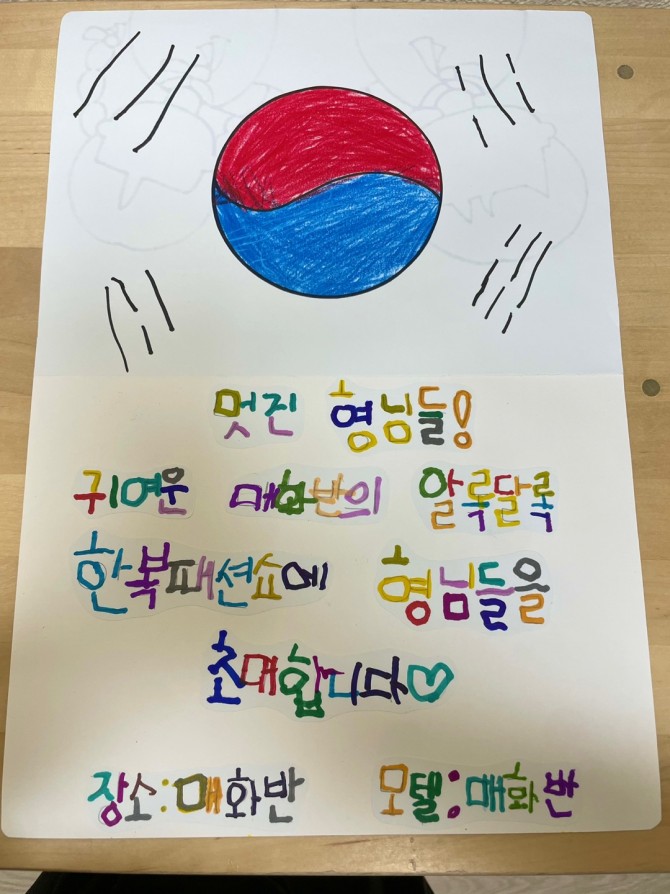 멋진 형님들!
귀여운 매화반의 알록달록
한복패션쇼에 형님들을
초대합니다♡
장소:매화반 모델:매화반